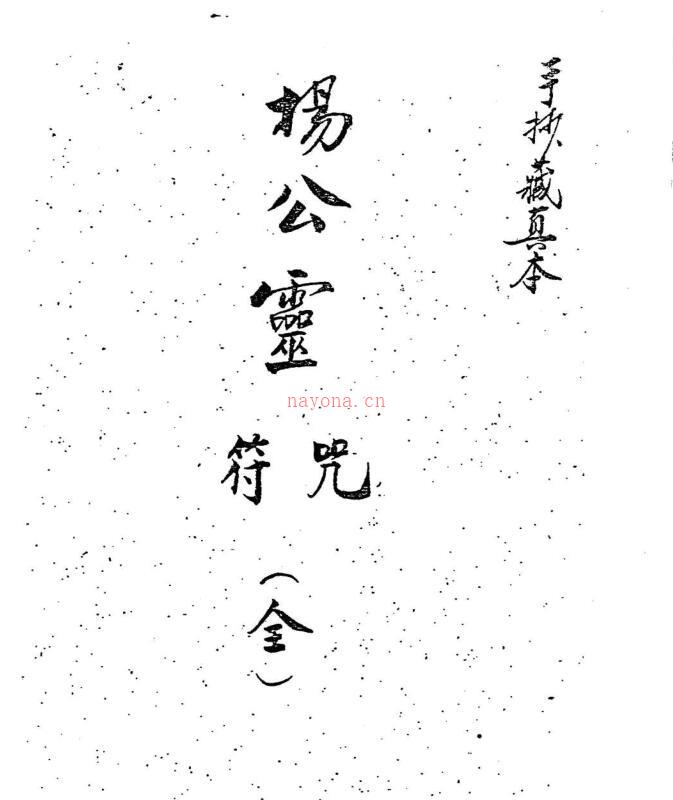 手抄藏真本
楊公靈
咒符
(全)
nayona.cn